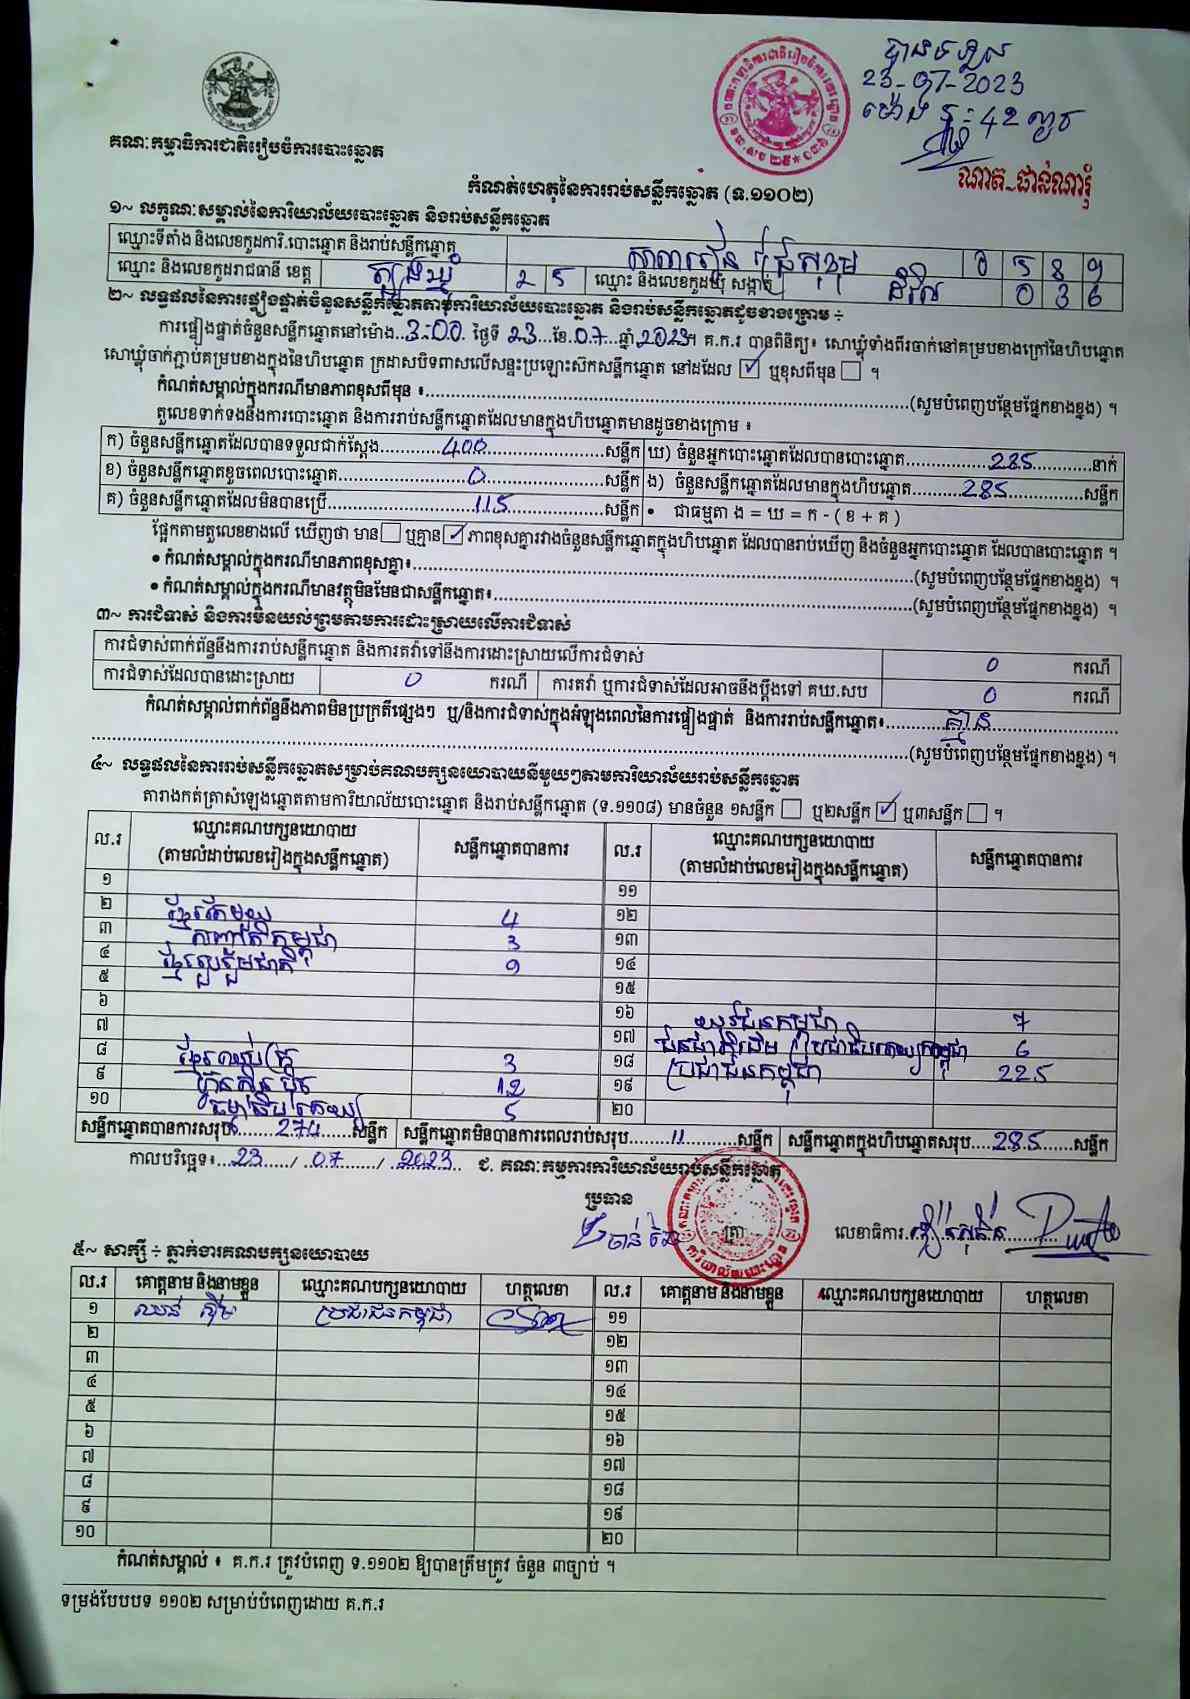 បានទទួល
23-07-2023
ម៉ោង : 42 នាទី
ណាត-ផាន់ណារុំ
គណៈកម្មាធិការជាតិរៀបចំការបោះឆ្នោត
កំណត់ហេតុនៃការរាប់សន្លឹកឆ្នោត (ទ.១១០២)
១~ លក្ខណៈសម្គាល់នៃការិយាល័យបោះឆ្នោត និងរាប់សន្លឹកឆ្នោត
ឈ្មោះទីតាំង និងលេខកូដការិ.បោះឆ្នោត និងរាប់សន្លឹកឆ្នោត សាលារៀន
ឈ្មោះ និងលេខកូដរាជធានី ខេត្ត ត្បូងឃ្មុំ 2 5 ឈ្មោះ និងលេខកូដឃុំ សង្កាត់ 0 3 6
២~ លទ្ធផលនៃការផ្ទៀងផ្ទាត់ចំនួនសន្លឹកឆ្នោតតាមការិយាល័យបោះឆ្នោត និងរាប់សន្លឹកឆ្នោតដូចខាងក្រោម ÷
ការផ្ទៀងផ្ទាត់ចំនួនសន្លឹកឆ្នោតនៅម៉ោង..3:00. ថ្ងៃទី 23...ខែ.07..ឆ្នាំ 2023។ គ.ក.រ បានពិនិត្យ៖ សោឃ្លុំទាំងពីរចាក់នៅគម្របខាងក្រៅនៃហិបឆ្នោត
សោឃ្លុំចាក់ភ្ជាប់គម្របខាងក្នុងនៃហិបឆ្នោត ក្រដាសបិទពាសលើសន្ទះប្រឡោះស៊កសន្លឹកឆ្នោត នៅដដែល ☑ ឬខុសពីមុន ☐ ។
កំណត់សម្គាល់ក្នុងករណីមានភាពខុសពីមុន ៖..........(សូមបំពេញបន្ថែមផ្នែកខាងខ្នង) ។
តួលេខទាក់ទងនឹងការបោះឆ្នោត និងការរាប់សន្លឹកឆ្នោតដែលមានក្នុងហិបឆ្នោតមានដូចខាងក្រោម ៖
ក) ចំនួនសន្លឹកឆ្នោតដែលបានទទួលជាក់ស្តែង..........400..........សន្លឹក ឃ) ចំនួនអ្នកបោះឆ្នោតដែលបានបោះឆ្នោត..........285..........នាក់
ខ) ចំនួនសន្លឹកឆ្នោតខូចពេលបោះឆ្នោត..........0..........សន្លឹក ង) ចំនួនសន្លឹកឆ្នោតដែលមានក្នុងហិបឆ្នោត..........285..........សន្លឹក
គ) ចំនួនសន្លឹកឆ្នោតដែលមិនបានប្រើ..........115..........សន្លឹក • ជាធម្មតា ង = ឃ = ក - ( ខ + គ )
ផ្អែកតាមតួលេខខាងលើ ឃើញថា មាន ☐ ឬគ្មាន ☑ ភាពខុសគ្នារវាងចំនួនសន្លឹកឆ្នោតក្នុងហិបឆ្នោត ដែលបានរាប់ឃើញ និងចំនួនអ្នកបោះឆ្នោត ដែលបានបោះឆ្នោត ។
• កំណត់សម្គាល់ក្នុងករណីមានភាពខុសគ្នា៖..........(សូមបំពេញបន្ថែមផ្នែកខាងខ្នង) ។
• កំណត់សម្គាល់ក្នុងករណីមានវត្ថុមិនមែនជាសន្លឹកឆ្នោត៖..........(សូមបំពេញបន្ថែមផ្នែកខាងខ្នង) ។
៣~ ការជំទាស់ និងការមិនយល់ព្រមតាមការដោះស្រាយលើការជំទាស់
ការជំទាស់ពាក់ព័ន្ធនឹងការរាប់សន្លឹកឆ្នោត និងការតវ៉ាទៅនឹងការដោះស្រាយលើការជំទាស់ 0 ករណី
ការជំទាស់ដែលបានដោះស្រាយ 0 ករណី ការតវ៉ា ឬការជំទាស់ដែលអាចនឹងប្តឹងទៅ គឃ.សប 0 ករណី
កំណត់សម្គាល់ពាក់ព័ន្ធនឹងភាពមិនប្រក្រតីផ្សេងៗ ឬ/និងការជំទាស់ក្នុងអំឡុងពេលនៃការផ្ទៀងផ្ទាត់ និងការរាប់សន្លឹកឆ្នោត៖..........គ្មាន..........
..........(សូមបំពេញបន្ថែមផ្នែកខាងខ្នង) ។
៤~ លទ្ធផលនៃការរាប់សន្លឹកឆ្នោតសម្រាប់គណបក្សនយោបាយនីមួយៗតាមការិយាល័យរាប់សន្លឹកឆ្នោត
តារាងកត់ត្រាសំឡេងឆ្នោតតាមការិយាល័យបោះឆ្នោត និងរាប់សន្លឹកឆ្នោត (ទ.១១០៨) មានចំនួន ១សន្លឹក ☐ ឬ២សន្លឹក ☑ ឬ៣សន្លឹក ☐ ។
ល.រ ឈ្មោះគណបក្សនយោបាយ (តាមលំដាប់លេខរៀងក្នុងសន្លឹកឆ្នោត) សន្លឹកឆ្នោតបានការ ល.រ ឈ្មោះគណបក្សនយោបាយ (តាមលំដាប់លេខរៀងក្នុងសន្លឹកឆ្នោត) សន្លឹកឆ្នោតបានការ
១ ១១
២ ខ្មែរតែមួយ 4 ១២
៣ កម្ពុជា 3 ១៣
៤ ខ្មែររួបរួមជាតិ 1 ១៤
៥ ១៥
៦ ១៦ យុវជនកម្ពុជា 7
៧ ១៧ ជនជាតិដើមប្រជាធិបតេយ្យកម្ពុជា 6
៨ ខ្មែរឈប់ក្រ 3 ១៨ ប្រជាជនកម្ពុជា 225
៩ ហ៊្វុនស៊ិនប៉ិច 12 ១៩
១០ ធម្មាធិបតេយ្យ 5 ២០
សន្លឹកឆ្នោតបានការសរុប.......274.......សន្លឹក សន្លឹកឆ្នោតមិនបានការពេលរាប់សរុប.......11.......សន្លឹក សន្លឹកឆ្នោតក្នុងហិបឆ្នោតសរុប....285......សន្លឹក
កាលបរិច្ឆេទ៖..23....../..07......./..2023.. ជ. គណៈកម្មការការិយាល័យរាប់សន្លឹកឆ្នោត
ប្រធាន
ត្រា
លេខាធិការ
៥~ សាក្សី ÷ ភ្នាក់ងារគណបក្សនយោបាយ
ល.រ គោត្តនាម និងនាមខ្លួន ឈ្មោះគណបក្សនយោបាយ ហត្ថលេខា ល.រ គោត្តនាម និងនាមខ្លួន ឈ្មោះគណបក្សនយោបាយ ហត្ថលេខា
១ ប្រជាជនកម្ពុជា ១១
២ ១២
៣ ១៣
៤ ១៤
៥ ១៥
៦ ១៦
៧ ១៧
៨ ១៨
៩ ១៩
១០ ២០
កំណត់សម្គាល់ ៖ គ.ក.រ ត្រូវបំពេញ ទ.១១០២ ឱ្យបានត្រឹមត្រូវ ចំនួន ៣ច្បាប់ ។
ទម្រង់បែបបទ ១១០២ សម្រាប់បំពេញដោយ គ.ក.រ